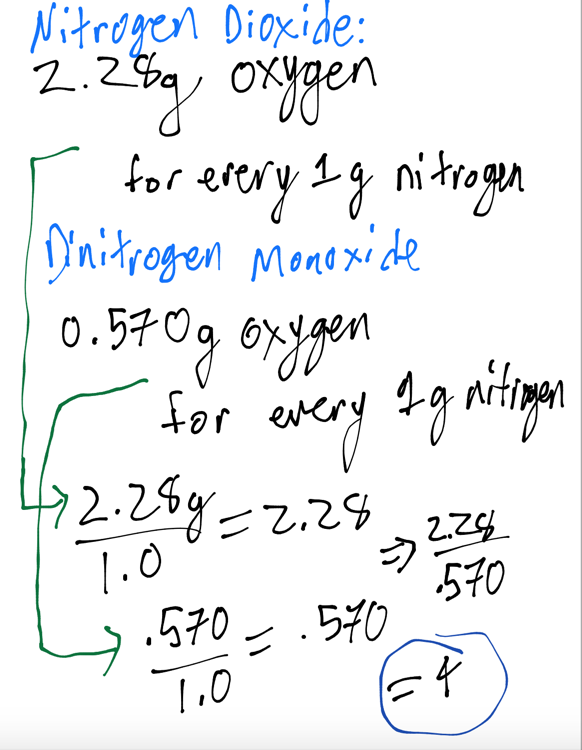 Nitrogen Dioxide:
2.28g oxygen
for every 1g nitrogen
Dinitrogen Monoxide
0.570g oxygen
for every 1g nitrogen
2.28g/1.0 = 2.28
⇒ 2.28/.570
.570/1.0 = .570
= 4